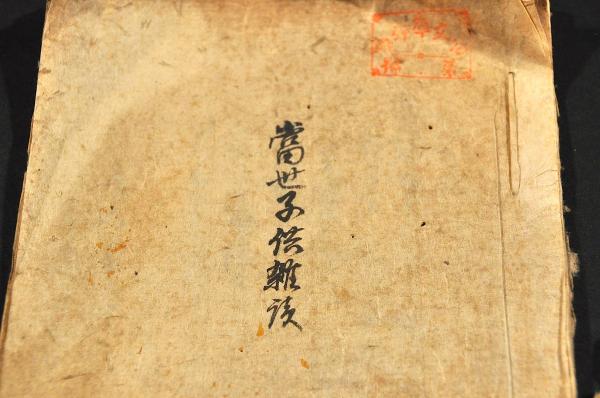 當世子供雜談